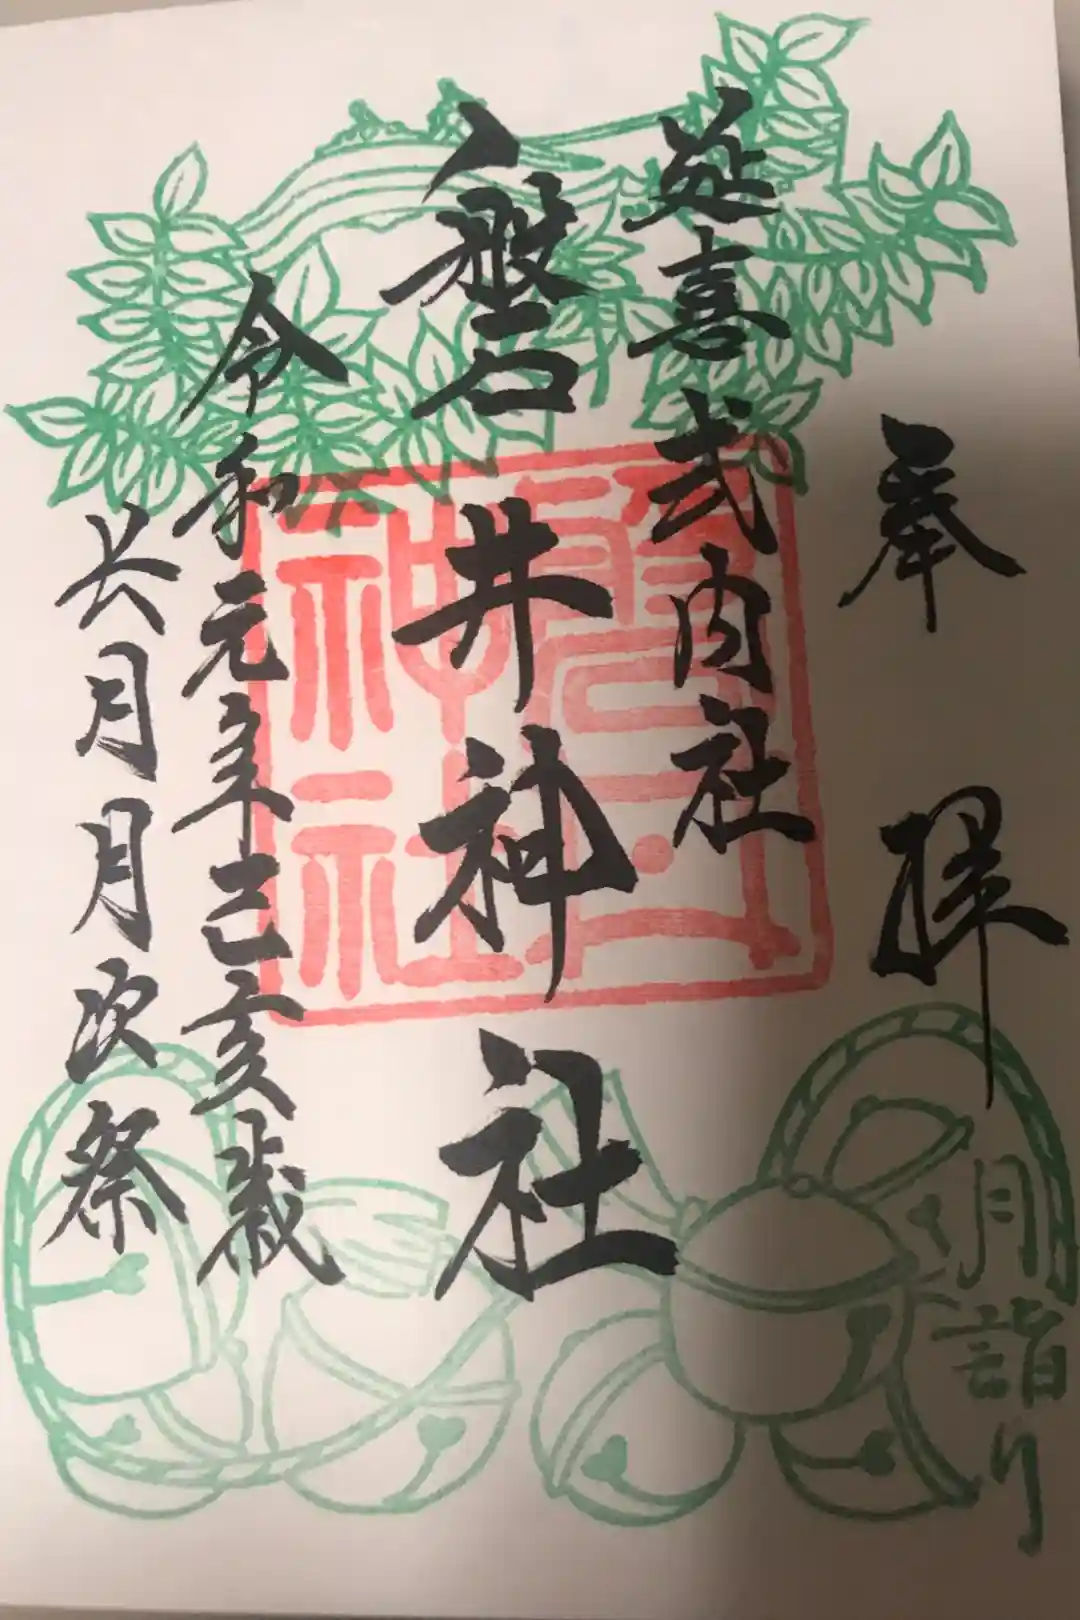 奉拝
月詣り
延喜式内社
磐井神社
磐井
神社
令和元年己亥歳
六月月次祭